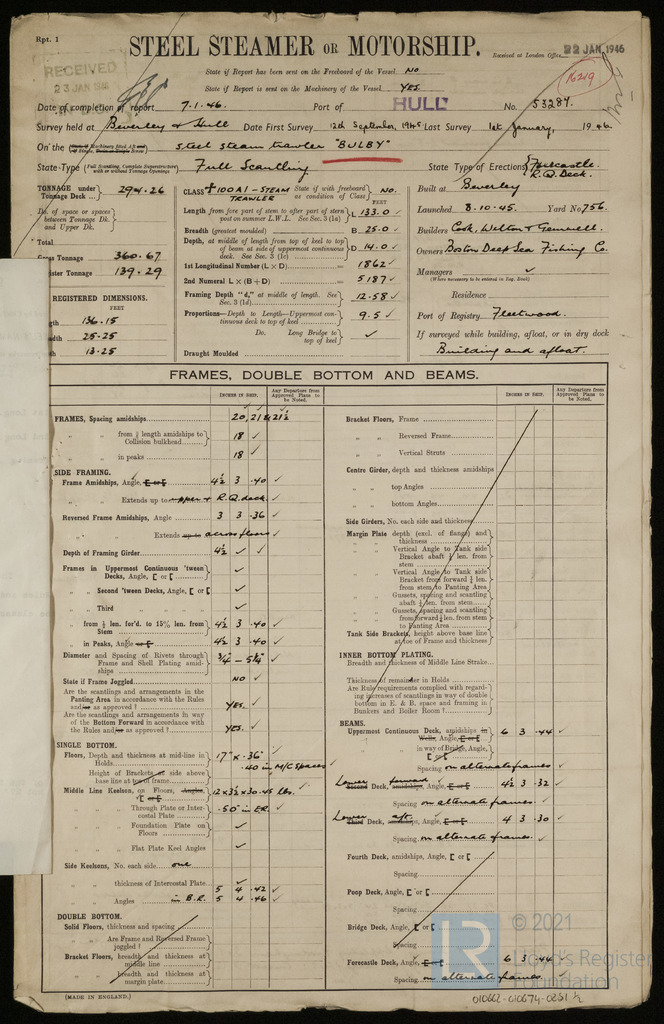 Rpt. 1
STEEL STEAMER OR MOTORSHIP.
Received at London Office 22 JAN 1946
RECEIVED
State if Report has been sent on the Freeboard of the Vessel NO
State if Report is sent on the Machinery of the Vessel YES
Date of completion of report 7.1.46. Port of HULL No. 53287.
Survey held at Beverley & Hull Date First Survey 12th September, 1945 Last Survey 1st January, 1946
On the steel steam trawler "BULBY"
State-Type (Full Scantling, Complete Superstructure with or without Tonnage Openings) Full Scantling State Type of Erections Forecastle. R.Q. Deck.
TONNAGE under Tonnage Deck ... 294.26
Do. of space or spaces between Tonnage Dk. and Upper Dk.
Total
Gross Tonnage 360.67
Register Tonnage 139.29
REGISTERED DIMENSIONS.
FEET
136.15
25.25
13.25
CLASS 100A1 - STEAM TRAWLER State if with freeboard as condition of Class No.
FEET
Length from fore part of stem to after part of stern post on summer L.W.L. See Sec. 3 (1a) L 133.0
Breadth (greatest moulded) B 25.0
Depth, at middle of length from top of keel to top of beam at side of uppermost continuous deck. See Sec. 3 (1c) D 14.0
1st Longitudinal Number (L × D) = 1862
2nd Numeral L × (B + D) = 5187
Framing Depth "d," at middle of length. See Sec. 3 (1d) 12.58
Proportions—Depth to Length—Uppermost continuous deck to top of keel 9.5
Do. Long Bridge to top of keel
Draught Moulded
Built at Beverley
Launched 8.10.45. Yard No 756.
Builders Cook, Welton & Gemmell.
Owners Boston Deep Sea Fishing Co.
Managers
(Where necessary to be entered in Reg. Book)
Residence
Port of Registry Fleetwood.
If surveyed while building, afloat, or in dry dock
Building and afloat.
FRAMES, DOUBLE BOTTOM AND BEAMS.
INCHES IN SHIP. Any Departure from Approved Plans to be Noted.
FRAMES, Spacing amidships 20, 21 & 21½
" " from ⅗ length amidships to Collision bulkhead 18
" " in peaks 18
SIDE FRAMING.
Frame Amidships, Angle, 4½ 3 .40
" " Extends up to upper & R.Q. deck.
Reversed Frame Amidships, Angle 3 3 .36
" " Extends across floors
Depth of Framing Girder 4½
Frames in Uppermost Continuous 'tween Decks, Angle, [ or [
" Second 'tween Decks, Angle, [ or [
" Third "
" from ⅗ len. for'd. to 15% len. from Stem 4½ 3 .40
" in Peaks, Angle 4½ 3 .40
Diameter and Spacing of Rivets through Frame and Shell Plating amidships ¾ - 5¼
State if Frame Joggled NO
Are the scantlings and arrangements in the Panting Area in accordance with the Rules and/or as approved? YES.
Are the scantlings and arrangements in way of the Bottom Forward in accordance with the Rules and/or as approved? YES.
SINGLE BOTTOM.
Floors, Depth and thickness at mid-line in Holds 17" x .36"
.40 in M/C spaces
Height of Brackets at side above base line at toe of frame
Middle Line Keelson, on Floors, 12 x 3½ x 30.45 lbs.
" " Through Plate or Intercostal Plate .50" in E.R.
" " Foundation Plate on Floors
" " Flat Plate Keel Angles
Side Keelsons, No. each side one
" " thickness of Intercostal Plate
5 4 .42
" " Angles in B.R. 5 4 .46
DOUBLE BOTTOM.
Solid Floors, thickness and spacing
" " Are Frame and Reversed Frame joggled?
Bracket Floors, breadth and thickness at middle line
" " breadth and thickness at margin plate
INCHES IN SHIP. Any Departure from Approved Plans to be Noted.
Bracket Floors, Frame
" " Reversed Frame
" " Vertical Struts
Centre Girder, depth and thickness amidships
" " top Angles
" " bottom Angles
Side Girders, No. each side and thickness
Margin Plate depth (excl. of flange) and thickness
" " Vertical Angle to Tank side Bracket abaft ¼ len. from stem
" " Vertical Angle to Tank side Bracket from forward ¼ len. from stem to Panting Area
" " Gussets, spacing and scantling abaft ¼ len. from stem
" " Gussets, spacing and scantling from forward ¼ len. from stem to Panting Area
Tank Side Brackets, height above base line at toe of Frame and thickness
INNER BOTTOM PLATING.
Breadth and thickness of Middle Line Strake
Thickness of remainder in Holds
Are Rule requirements complied with regarding increases of scantlings in way of double bottom in E. & B. space and framing in Bunkers and Boiler Room?
BEAMS.
Uppermost Continuous Deck, amidships 6 3 .44
" " in way of Bridge, Angle,
Spacing on alternate frames
Lower Deck, forward Angle, 4½ 3 .32
Spacing on alternate frames.
Lower Deck, aft Angle, 4 3 .30
Spacing on alternate frames.
Fourth Deck, amidships, Angle, [ or [
Spacing
Poop Deck, Angle, [ or [
Spacing
Bridge Deck, Angle, [ or [
Spacing
Forecastle Deck, Angle, 6 3 .44
Spacing on alternate frames.
(MADE IN ENGLAND.)
© 2021
LR
Lloyd's Register
Foundation
010662-010674-0231 ½